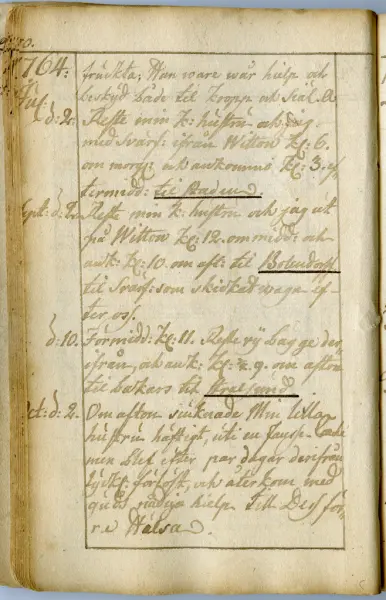 1764.
fruckta, Han ware wår hielp och
beskyd både til kropp och Siäl. A
Jul: d: 2. Reste min K: hustru och jag
med Svärf: ifrån Wittow kl: 6.
om morg: och ankommo kl: 3. ef
termidd: til
Sept: d: 2. Reste min K: hustru och jag ut
från Wittow kl: 12. om midd: och
ank: kl: 10. om aft: til Bolendorff
til Svärf: som skickade wagn ef-
ter oss.
d: 10. Förmidd: kl: 11. Reste vÿ bägge der
ifrån, och ank: kl: 9. om afton
til bakars til Stralsund
Oct: d: 2. Om afton siuknade Min lilla
hustru häftigt, uti en
men blef efter par dagar derifrån
lyckl: förlöst, och återkom med
Guds nådiga hielp till Dess för-
ra Hälsa.